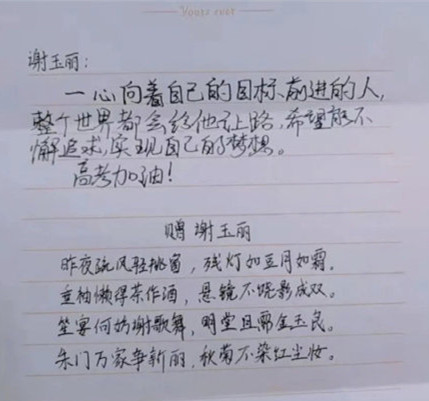 谢玉丽:
一心向着自己的目标前进的人,
整个世界都会给他让路,希望能不
懈追求,实现自己的梦想。
高考加油!
赠谢玉丽
昨夜疏风轻挑窗,残灯如豆月如霜,
垂袖懒得茶作酒,悬镜不晓影成双。
笙宴何妨谢歌舞,明堂且鄙金玉良。
朱门万家争新丽,秋菊不染红尘妆。